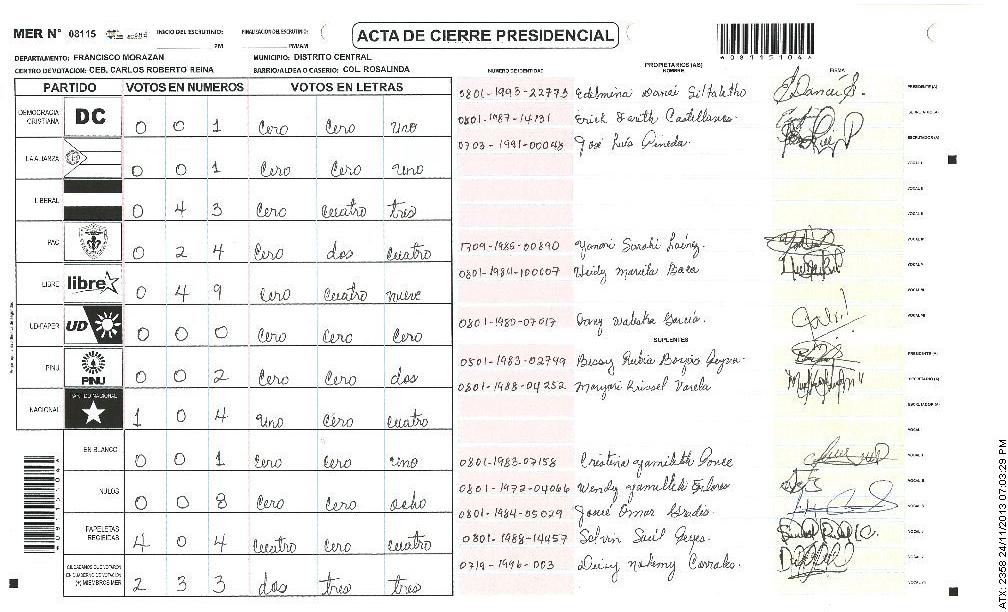 MER N° 08115 INICIO DEL ESCRUTINIO: PM FINALIZACION DEL ESCRUTINIO: PM/AM
ACTA DE CIERRE PRESIDENCIAL
DEPARTAMENTO: FRANCISCO MORAZAN MUNICIPIO: DISTRITO CENTRAL
CENTRO DE VOTACION: CEB. CARLOS ROBERTO REINA BARRIO/ALDEA O CASERIO: COL. ROSALINDA
PARTIDO VOTOS EN NUMEROS VOTOS EN LETRAS
DEMOCRACIA CRISTIANA DC 0 0 1 Cero Cero Uno
LA ALIANZA 0 0 1 Cero Cero uno
LIBERAL 0 4 3 Cero Cuatro tres
PAC 0 2 4 Cero dos cuatro
LIBRE libre 0 4 9 Cero Cuatro nueve
UD-FAPER UD 0 0 0 Cero Cero Cero
PINU PINU 0 0 2 Cero Cero dos
NACIONAL PARTIDO NACIONAL 1 0 4 Uno Cero cuatro
EN BLANCO 0 0 1 Cero Cero uno
NULOS 0 0 8 Cero Cero ocho
PAPELETAS RECIBIDAS 4 0 4 Cuatro Cero cuatro
CIUDADANOS QUE VOTARON EN CUADERNO DE VOTACION (+) MIEMBROS MER 2 3 3 dos tres tres
NUMERO DE IDENTIDAD PROPIETARIOS (AS) NOMBRE FIRMA
0801-1993-22773 Edelmina Danai PRESIDENTE (A)
0801-1987-14731 Erick Darith Castellanos SECRETARIO (A)
0703-1991-00048 José Luis Pineda ESCRUTADOR (A)
VOCAL I
VOCAL II
VOCAL III
1709-1986-00890 Sarahi Laínez VOCAL IV
0801-1984-100607 Heidy Baca VOCAL V
VOCAL VI
0801-1980-07017 Dany García VOCAL VII
SUPLENTES
0501-1983-02799 Bessy Rubia PRESIDENTE (A)
0801-1988-04252 Maryori Krissel Varela SECRETARIO (A)
ESCRUTADOR (A)
VOCAL I
0801-1983-07158 Cristina Yamileth Ponce VOCAL II
0801-1972-04066 Wendy VOCAL III
0801-1984-05029 Josué Omar VOCAL IV
0801-1988-14457 Selvin Saúl Reyes VOCAL V
0719-1996-003 Deisy Nohemy Corrales VOCAL VI
VOCAL VII
ATX: 2358 24/11/2013 07:03:29 PM